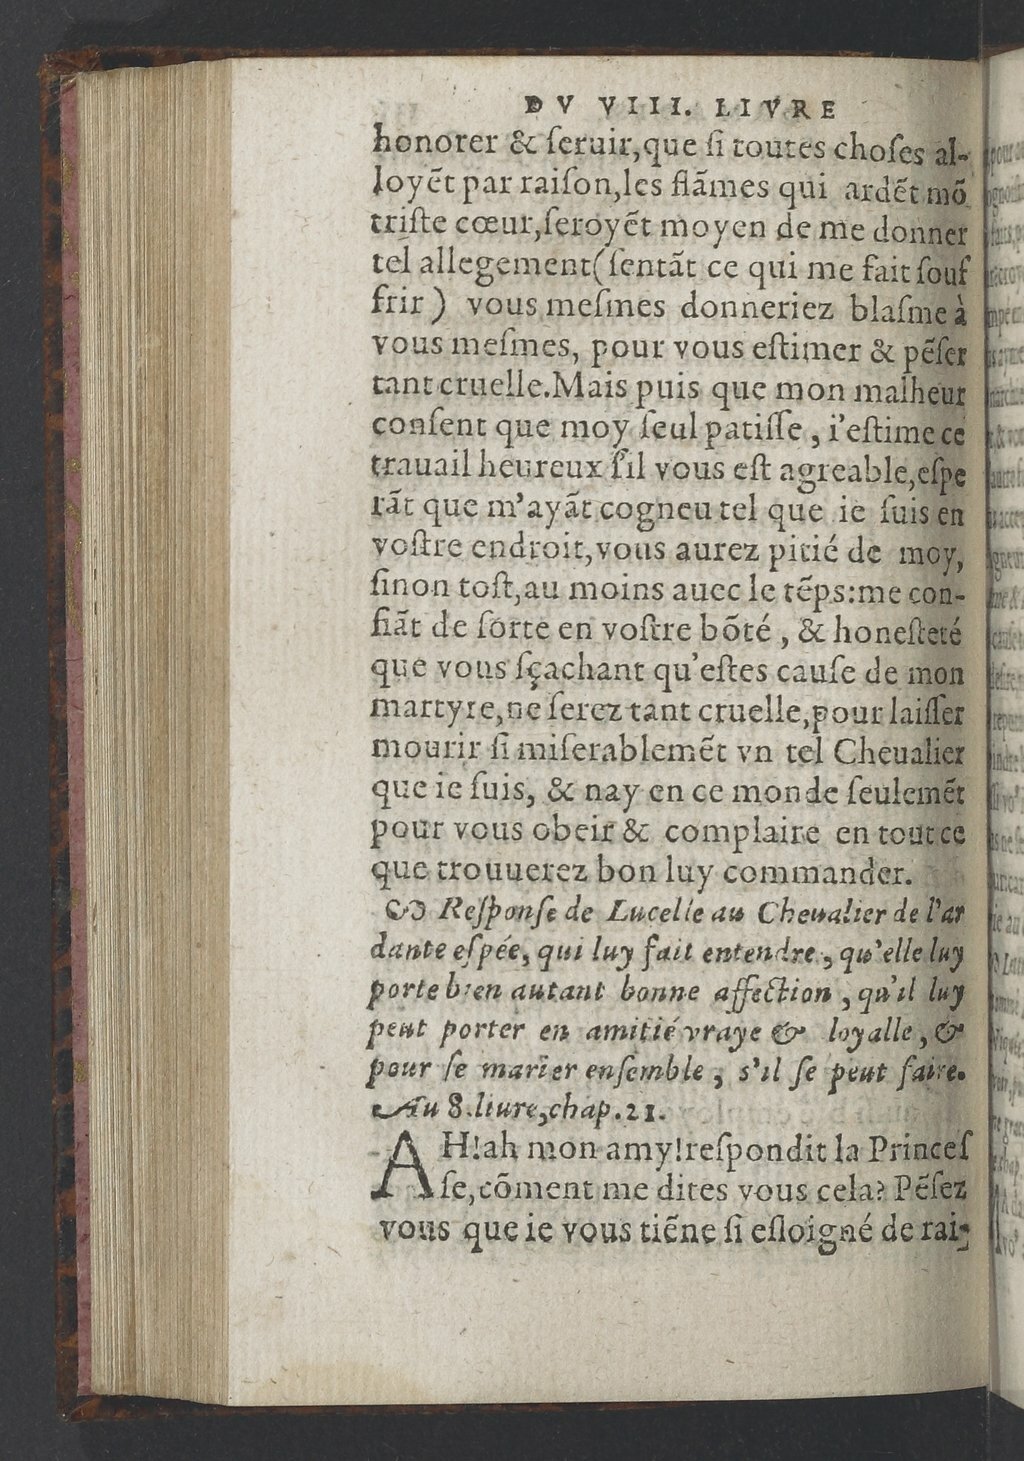 DV VIII. LIVRE
honorer & ſeruir,que ſi toutes choſes al-
loyẽt par raiſon,les flãmes qui ardẽt mõ
triſte cœur,ſeroyẽt moyen de me donner
tel allegement(ſentãt ce qui me fait ſouf
frir) vous meſmes donneriez blaſme à
vous meſmes, pour vous eſtimer & pẽſer
tant cruelle.Mais puis que mon malheur
conſent que moy ſeul patiſſe , i'eſtime ce
trauail heureux ſ'il vous eſt agreable,eſpe
rãt que m'ayãt cogneu tel que ie ſuis en
voſtre endroit,vous aurez pitié de moy,
ſinon toſt,au moins auec le tẽps:me con-
fiãt de ſorte en voſtre bõté , & honeſteté
que vous ſçachant qu'eſtes cauſe de mon
martyre,ne ſerez tant cruelle,pour laiſſer
mourir ſi miſerablemẽt vn tel Cheualier
que ie ſuis, & nay en ce monde ſeulemẽt
pour vous obeir & complaire en tout ce
que trouuerez bon luy commander.
Reſponſe de Lucelle au Cheualier de l'ar
dante eſpée, qui luy fait entendre, qu'elle luy
porte bien autant bonne affection , qu'il luy
peut porter en amitié vraye & loyalle, &
pour ſe marier enſemble , s'il ſe peut faire.
Au 8.liure,chap.21.
AH!ah mon amy!reſpondit la Princeſ
ſe,cõment me dites vous cela? Pẽſez
vous que ie vous tiẽne ſi eſloigné de rai-